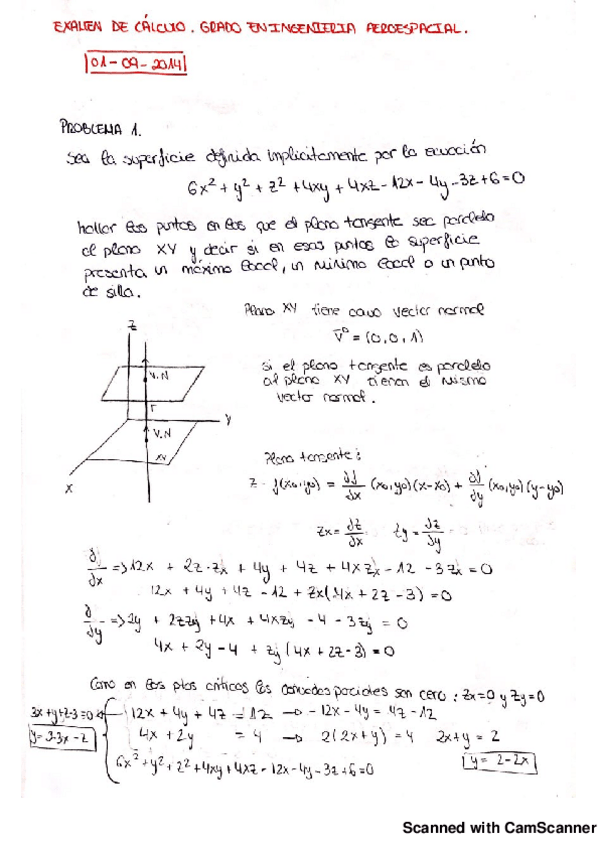 EXAMEN DE CÁLCULO. GRADO EN INGENIERIA AEROESPACIAL.
01-09-2014
PROBLEMA 1.
Sea la superficie definida implicitamente por la ecuación
6x² + y² + z² + 4xy + 4xz - 12x - 4y - 3z + 6 = 0
hallar los puntos en los que el plano tangente sea paralelo
al plano XY y decir si en esos puntos la superficie
presenta un máximo local, un mínimo local o un punto
de silla.
Plano XY tiene como vector normal
v̄⁰ = (0,0,1)
Si el plano tangente es paralelo
al plano XY tienen el mismo
vector normal.
z
V.N
π
y
V.N
XY
x
Plano tangente:
z - f(x₀,y₀) = ∂f/∂x (x₀,y₀)(x-x₀) + ∂f/∂y (x₀,y₀)(y-y₀)
Zx = ∂z/∂x Zy = ∂z/∂y
∂/∂x => 12x + 2z·zx + 4y + 4z + 4xzx - 12 - 3zx = 0
12x + 4y + 4z - 12 + zx(4x + 2z - 3) = 0
∂/∂y => 2y + 2zzy + 4x + 4xzy - 4 - 3zy = 0
4x + 2y - 4 + zy(4x + 2z - 3) = 0
Como en los ptos críticos las derivadas parciales son cero: Zx=0 y Zy=0
3x+y+z-3=0 12x + 4y + 4z = 12 → -12x - 4y = 4z - 12
y = 3-3x-z 4x + 2y = 4 → 2(2x+y) = 4 2x+y = 2
6x² + y² + z² + 4xy + 4xz - 12x - 4y - 3z + 6 = 0 y = 2-2x
Scanned with CamScanner